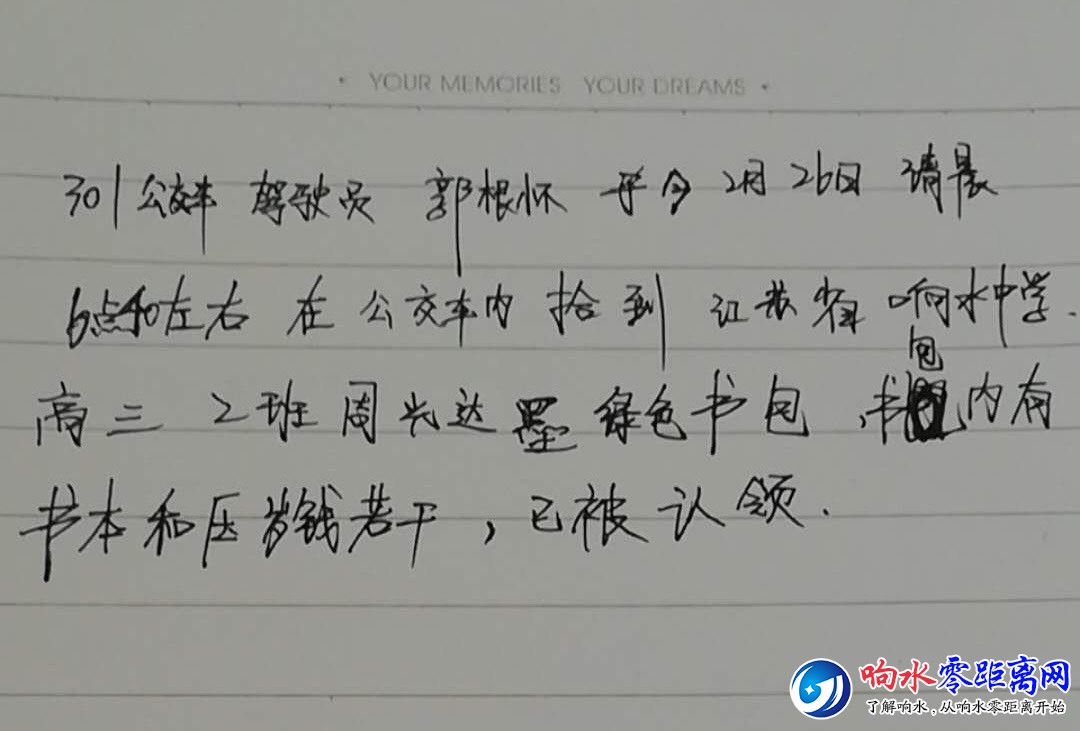 • YOUR MEMORIES YOUR DREAMS •
301公交车 驾驶员 郭根怀 于今 2月26日 清晨
6点40左右 在公交车内 拾到 江苏省响水中学.
高三 2班 周兴达 墨绿色书包,书包内有
书本和压岁钱若干,已被认领.
响水零距离网
了解响水,从响水零距离开始